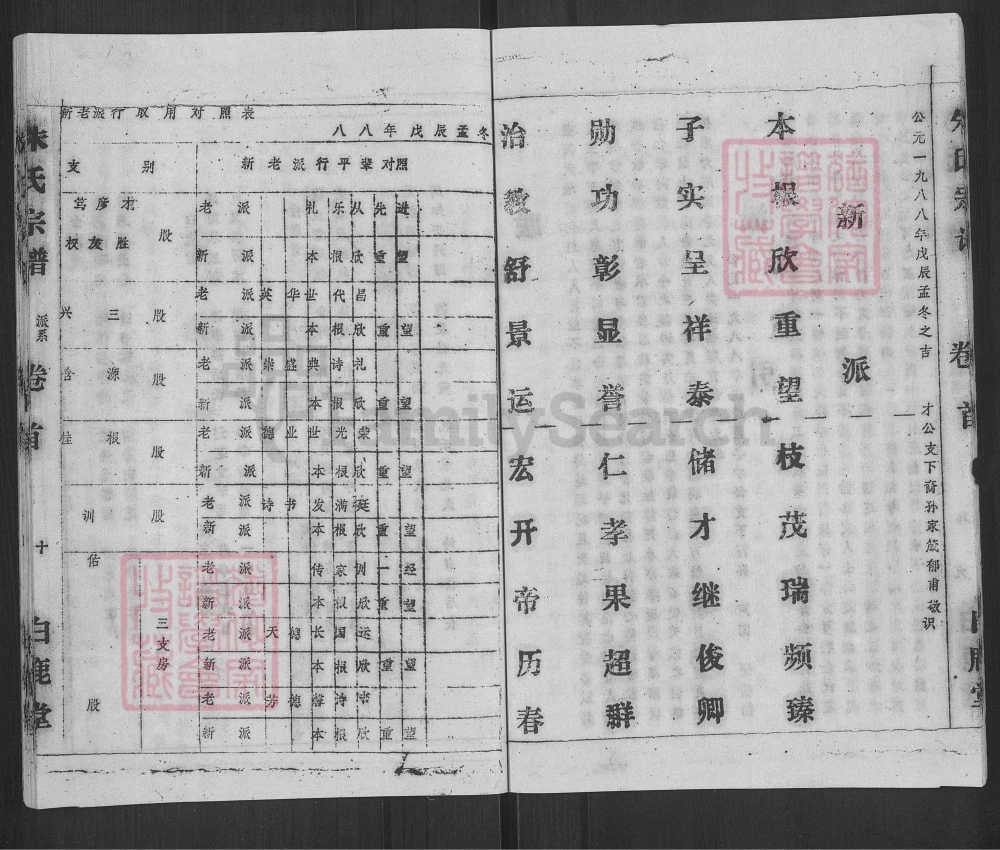 公元一九八八年戊辰孟冬之吉
才公支下裔孙家箴郁甫敬识
新派
本根欣重望 枝茂瑞频臻
子实呈祥泰 储才继俊卿
勋功彰显誉 仁孝果超群
治教舒景运 宏开帝历春
新老派行取用对照表
八八年戊辰孟冬
支别 新老派行平辈对照
笃彦才 校友胜 股
老派 礼乐从先进
新派 本根欣重望
兴三股
老派 英华世代昌
新派 本根欣重望
含源股
老派 崇盛典诗礼
新派 本根欣重望
桂根股
老派 德业世光荣
新派 本根欣重望
训股
老派 诗书发满廷
新派 本根欣重望
佑股 三支房
老派 传家训一经
新派 本根欣重望
老派 天德长国运
新派 本根欣重望
老派 芳德馨诗
新派 本根欣重望
朱氏宗谱 派系 卷首 十 白鹿堂
FamilySearch